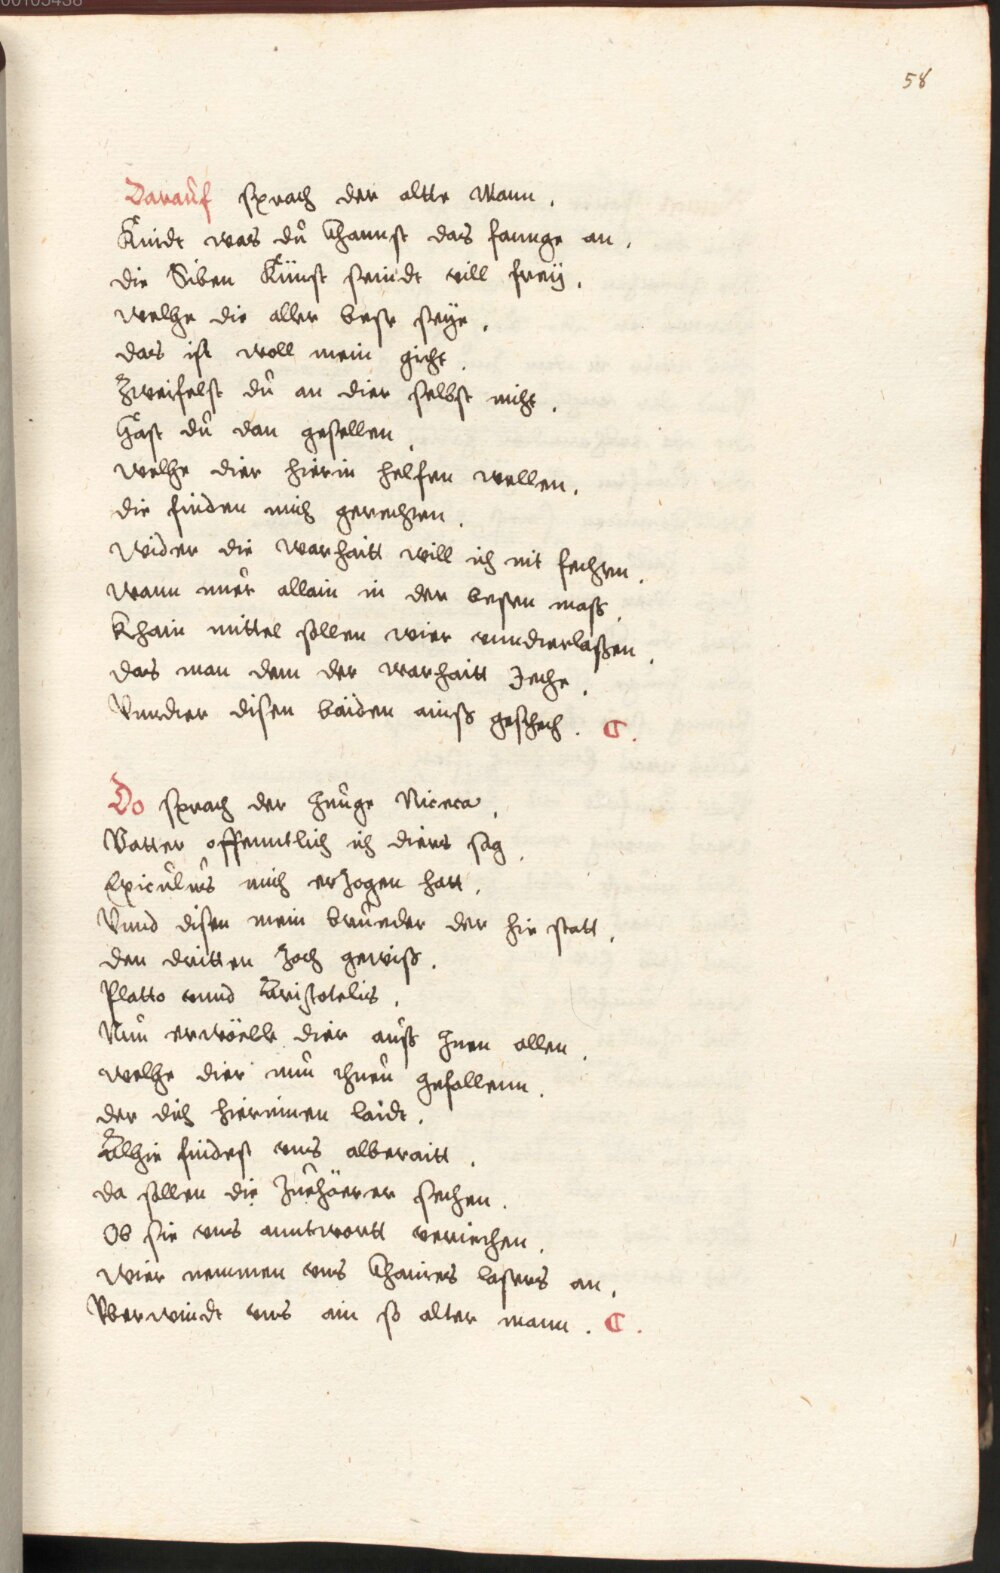 00105438
58
Darauf sprach der altte Mann.
Kindt was du khannst das fannge an.
die Siben Künst seindt vill freÿ.
welhe die aller best seÿe.
das ist woll mein gicht.
Zweifelst du an dier selbst nicht.
Hast du dan gesellen.
welhe dier hierin helfen wellen.
die finden mich gerechten.
Wider die warhaitt will ich nit fechten.
wann nuer allain in der besten mass.
Khain mittel sollen wier vnndterlaßen.
das man dem der warhaitt Jeche.
Vnndter disen baiden ainß geschech. C.
Do sprach der Junge Niceta.
Vatter offenntlich ich diers sag.
Epicurus mich erzogen hatt.
Vnnd disen mein brueder der hie statt.
den dritten zoch gewiß.
Platto vnnd Aristotelis.
Nun erwölle dier auß Jnen allen.
welhe dier nun thuen gefallenn.
der dich hierinnen laidt.
Alhie findest vns alberaitt.
da sollen die Zuehöerer sechen.
Ob sie vns anntwortt veriechen.
wier nemmen vns khaines lasters an.
Vberwindt vns ain so alter mann. C.